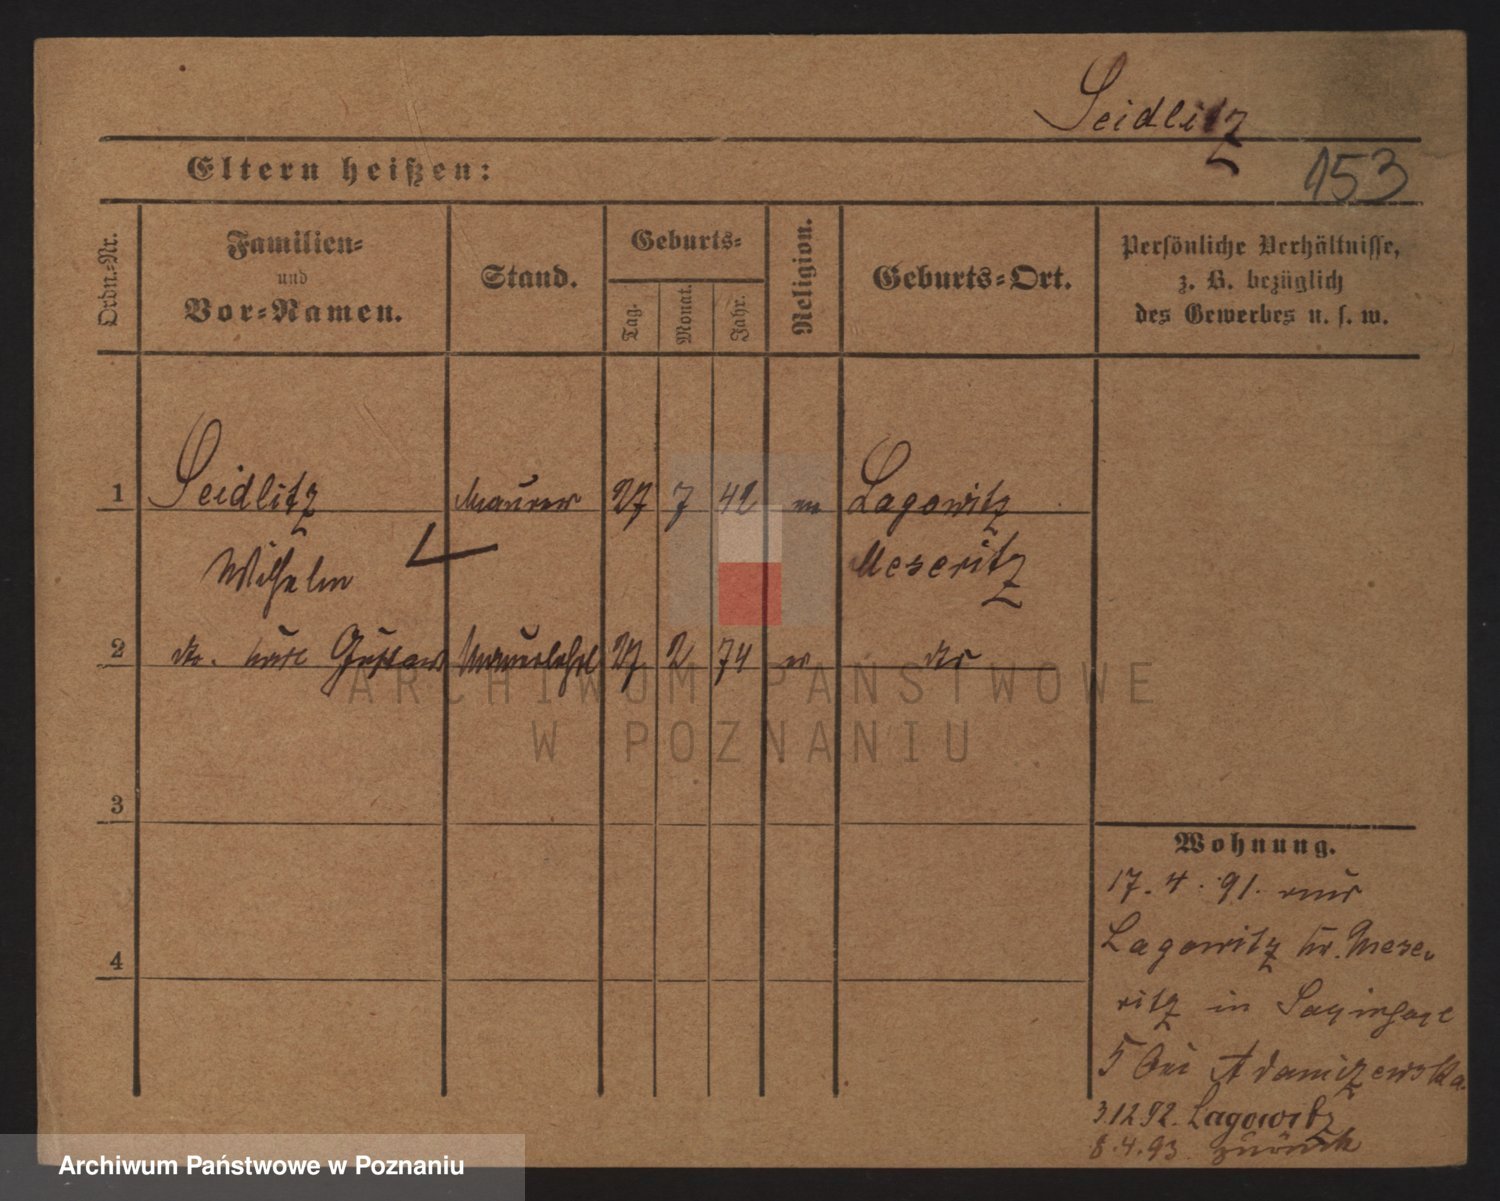 Seidlitz
Eltern heißen:
153
Ordn.-Nr.
Familien-
und
Vor-Namen.
Stand.
Geburts-
Tag.
Monat.
Jahr.
Religion.
Geburts-Ort.
Persönliche Verhältnisse,
z. B. bezüglich
des Gewerbes u. s. w.
1 Seidlitz Maurer 27 7 42 ev Lagowitz
Wilhelm Meseritz
2 do. Karl Gustav Maurerlehrl 27 2 74 ev do
3
4
Wohnung.
17. 4. 91. aus
Lagowitz Kr. Mese-
ritz in
5 bei Adamizewska.
3.12.92. Lagowitz
8.4.93 zurück
ARCHIWUM PAŃSTWOWE
W POZNANIU
Archiwum Państwowe w Poznaniu